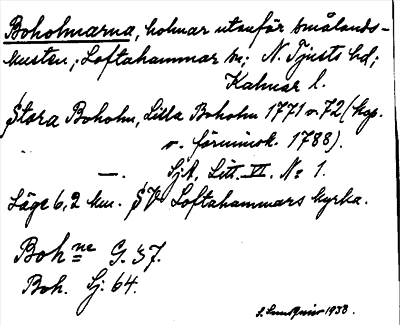 Boholmarna, holmar utanför Smålands-
kusten; Loftahammar sn; N. Tjusts hd;
Kalmar l.
Stora Boholm, Lilla Boholm 1771 o. 72 (kop.
o. förminsk. 1788).
—. SjA, Litt. VI. No 1.
Läge 6,2 km. SV Loftahammars kyrka.
Boh ne G. 37.
Boh. Sj: 64.
1938.